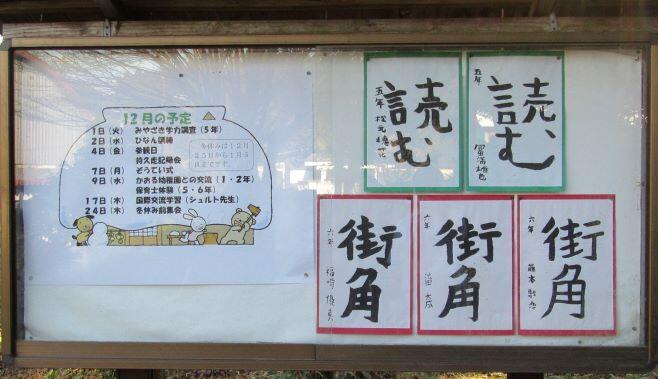 12月の予定
1日（火） みやざき学力調査（5年）
2日（水） ひなん訓練
4日（金） 参観日
持久走記録会
7日（月） ぞうてい式
9日（水） かおる幼稚園との交流（1・2年）
保育士体験（5・6年）
17日（木） 国際交流学習（シュルト先生）
24日（木） 冬休み前集会
冬休みは12月
25日から1月5
日までです。
読む
五年
読む
五年
街角
六年
街角
六年
街角
六年